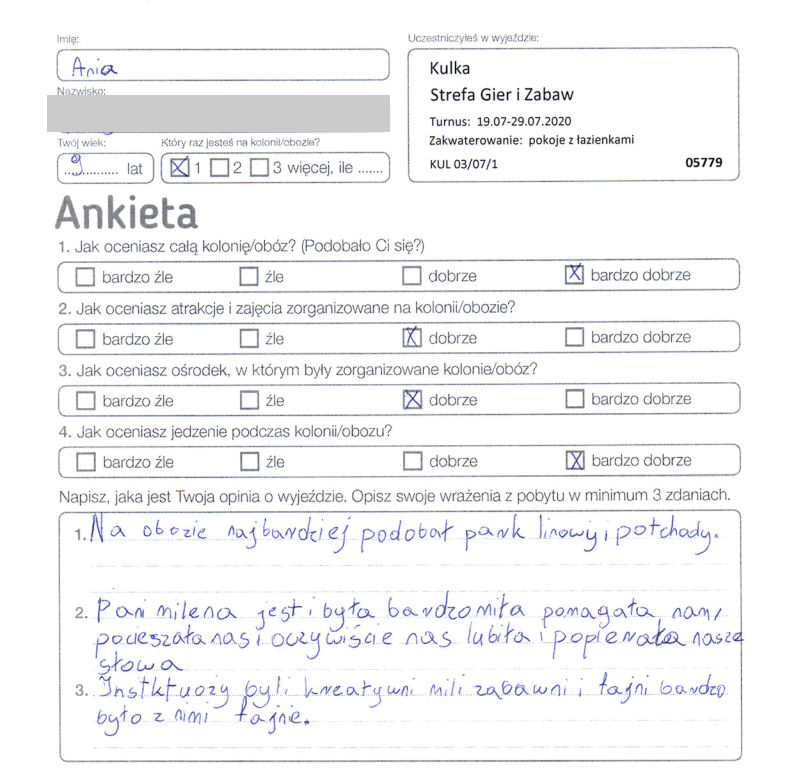 Imię:
Ania
Uczestniczyłeś w wyjeździe:
Kulka
Strefa Gier i Zabaw
Turnus: 19.07-29.07.2020
Zakwaterowanie: pokoje z łazienkami
KUL 03/07/1 05779
Nazwisko:
Twój wiek: Który raz jesteś na kolonii/obozie?
..9.......... lat 1 2 3 więcej, ile .......
Ankieta
1. Jak oceniasz całą kolonię/obóz? (Podobało Ci się?)
bardzo źle źle dobrze X bardzo dobrze
2. Jak oceniasz atrakcje i zajęcia zorganizowane na kolonii/obozie?
bardzo źle źle X dobrze bardzo dobrze
3. Jak oceniasz ośrodek, w którym były zorganizowane kolonie/obóz?
bardzo źle źle X dobrze bardzo dobrze
4. Jak oceniasz jedzenie podczas kolonii/obozu?
bardzo źle źle dobrze X bardzo dobrze
Napisz, jaka jest Twoja opinia o wyjeździe. Opisz swoje wrażenia z pobytu w minimum 3 zdaniach.
1. Na obozie najbardziej podobał park linowy i potchady.
2. Pani milena jest i była bardzo miła pomagała nam,
pocieszała nas i oczywiście nas lubiła i popierała nasze
słowa
3. Instktuozy byli kreatywni mili zabawni i fajni bardzo
było z nimi fajnie.